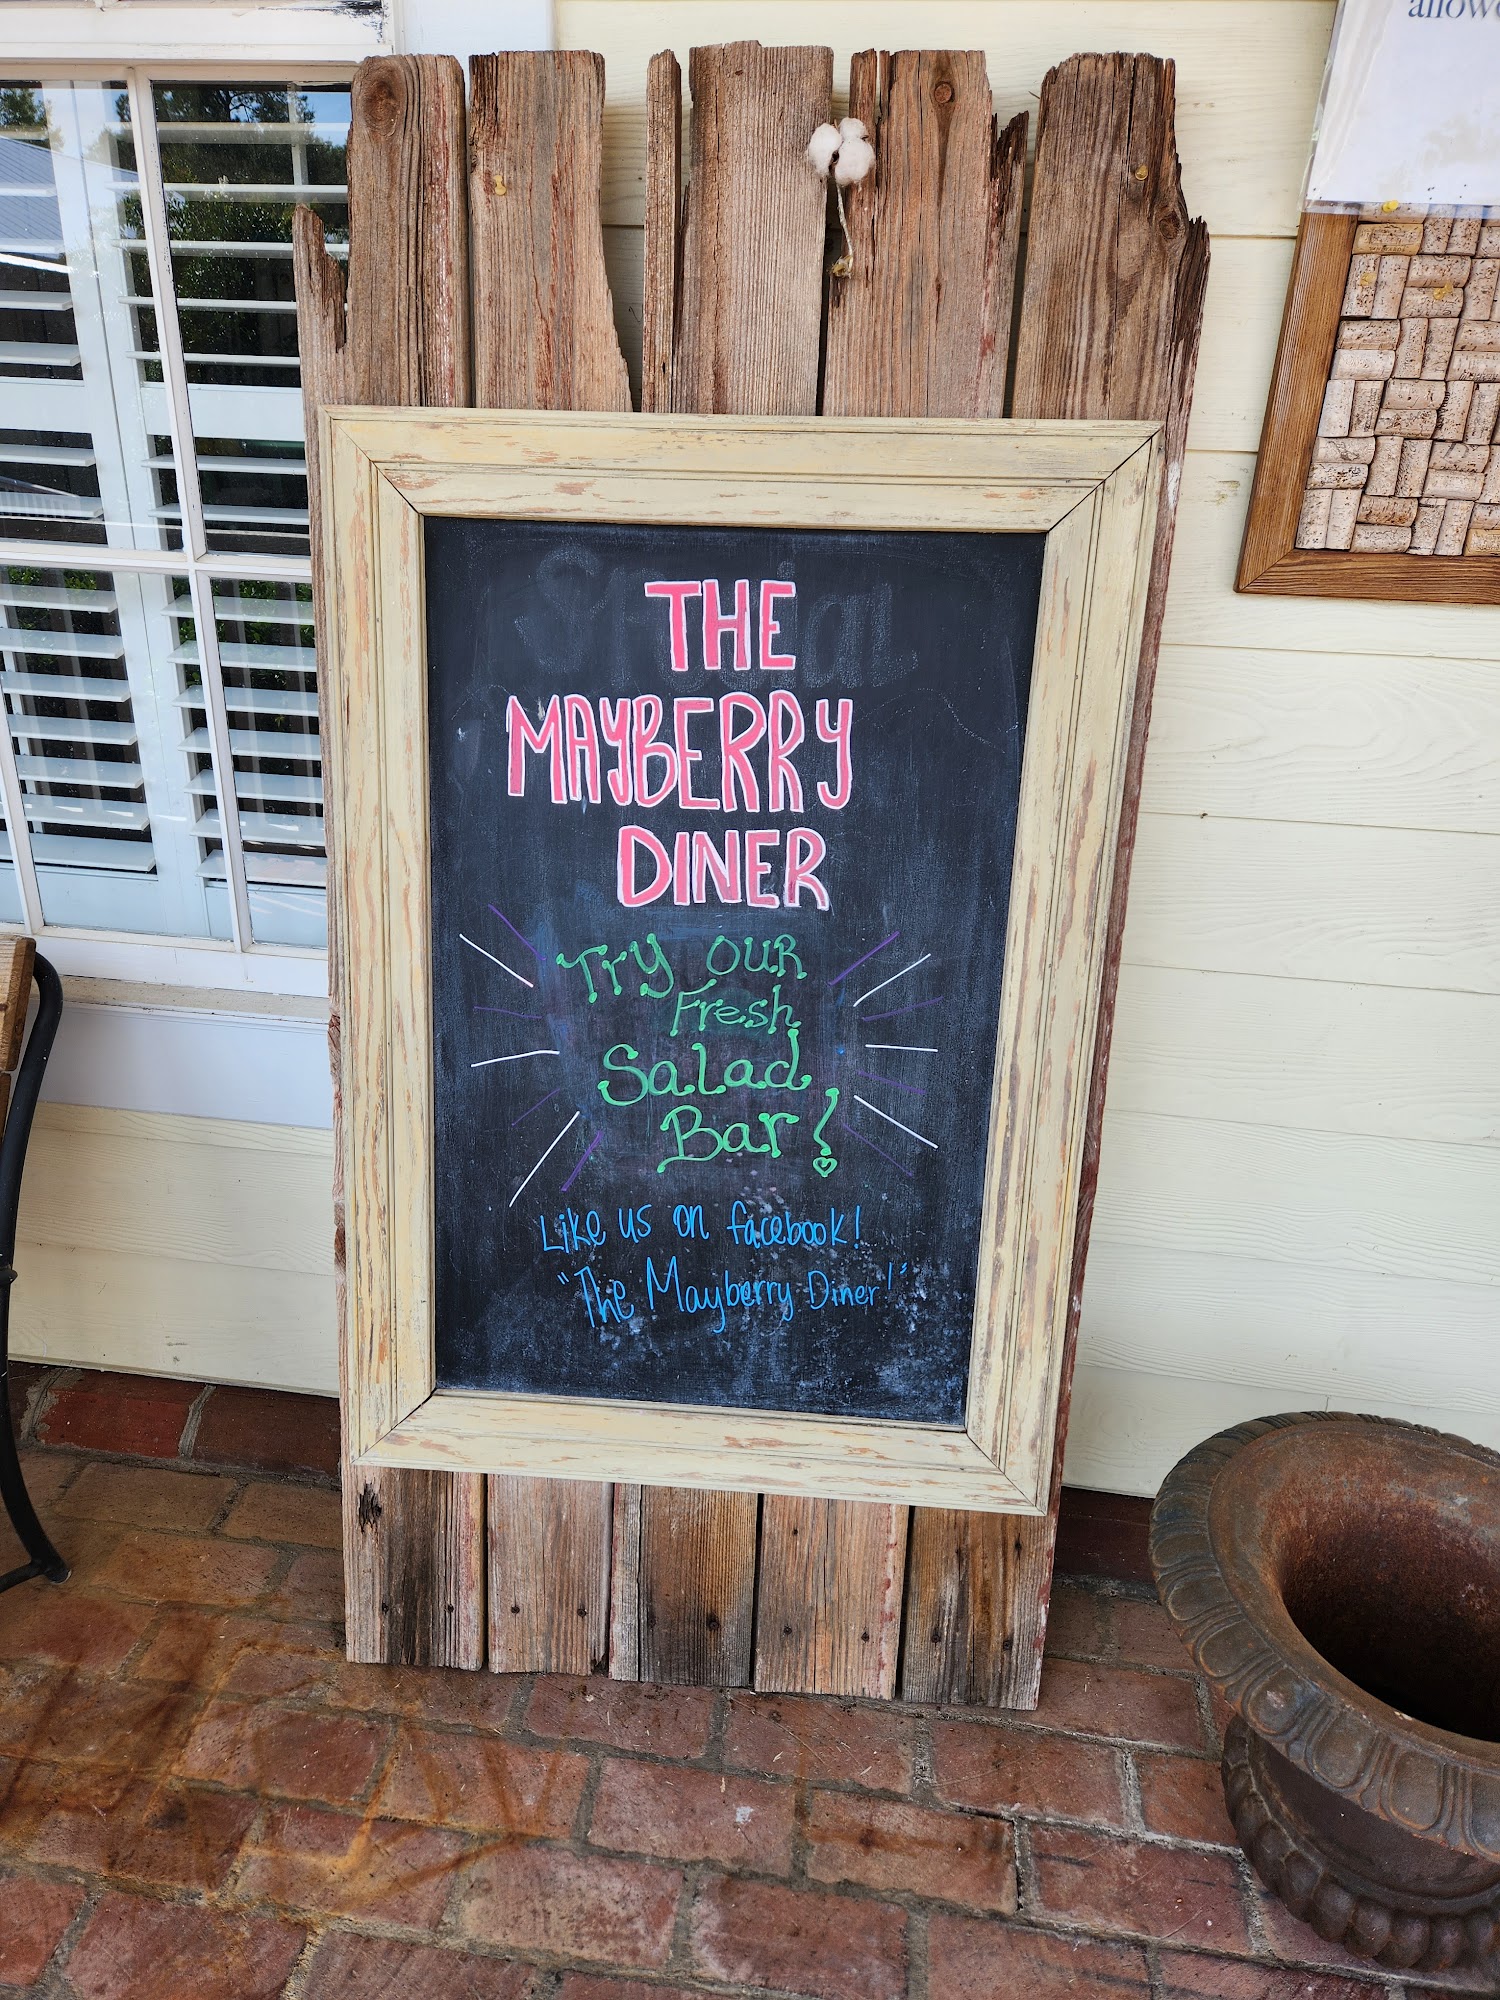 allowe
Special
THE
MAYBERRY
DINER
Try OUR
Fresh
Salad
Bar!
Like us on facebook!
"The Mayberry Diner!"